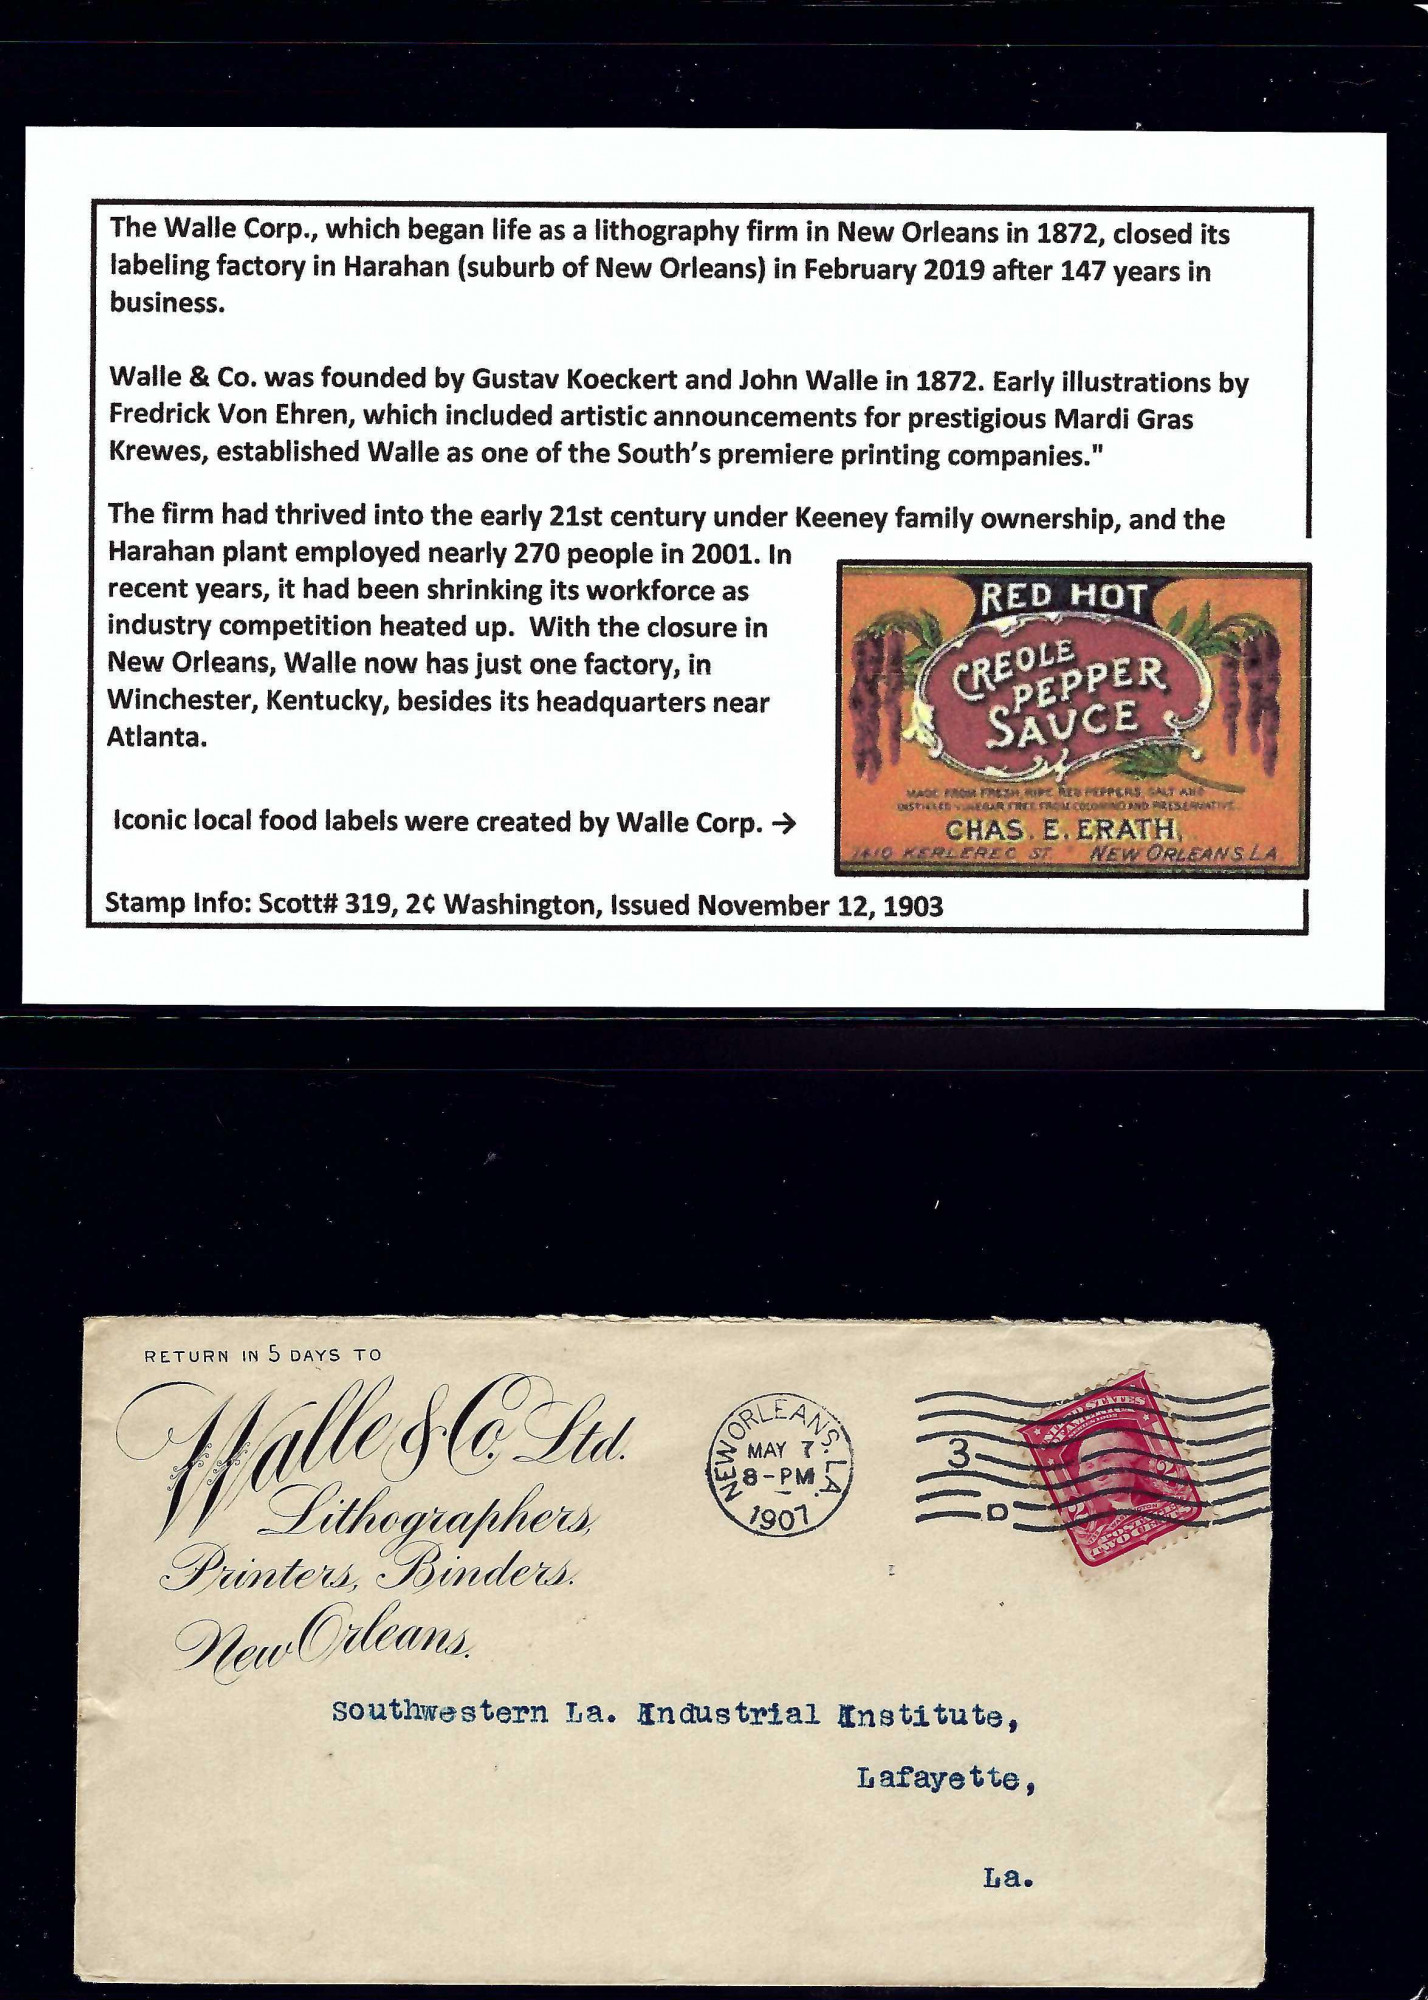 The Walle Corp., which began life as a lithography firm in New Orleans in 1872, closed its
labeling factory in Harahan (suburb of New Orleans) in February 2019 after 147 years in
business.
Walle & Co. was founded by Gustav Koeckert and John Walle in 1872. Early illustrations by
Fredrick Von Ehren, which included artistic announcements for prestigious Mardi Gras
Krewes, established Walle as one of the South's premiere printing companies."
The firm had thrived into the early 21st century under Keeney family ownership, and the
Harahan plant employed nearly 270 people in 2001. In
recent years, it had been shrinking its workforce as
industry competition heated up. With the closure in
New Orleans, Walle now has just one factory, in
Winchester, Kentucky, besides its headquarters near
Atlanta.
Iconic local food labels were created by Walle Corp. →
RED HOT
CREOLE
PEPPER
SAUCE
MADE FROM FRESH RIPE RED PEPPERS SALT AND
DISTILLED VINEGAR FREE FROM COLORING AND PRESERVATIVE
CHAS. E. ERATH,
1410 KERLEREC ST. NEW ORLEANS LA
Stamp Info: Scott# 319, 2¢ Washington, Issued November 12, 1903
RETURN IN 5 DAYS TO
Walle & Co. Ltd.
Lithographers,
Printers, Binders.
New Orleans.
NEW ORLEANS, LA.
MAY 7
8-PM
1907
3
D
UNITED STATES
OF AMERICA
2 2
POSTAGE
TWO CENTS
Southwestern La. Industrial Institute,
Lafayette,
La.